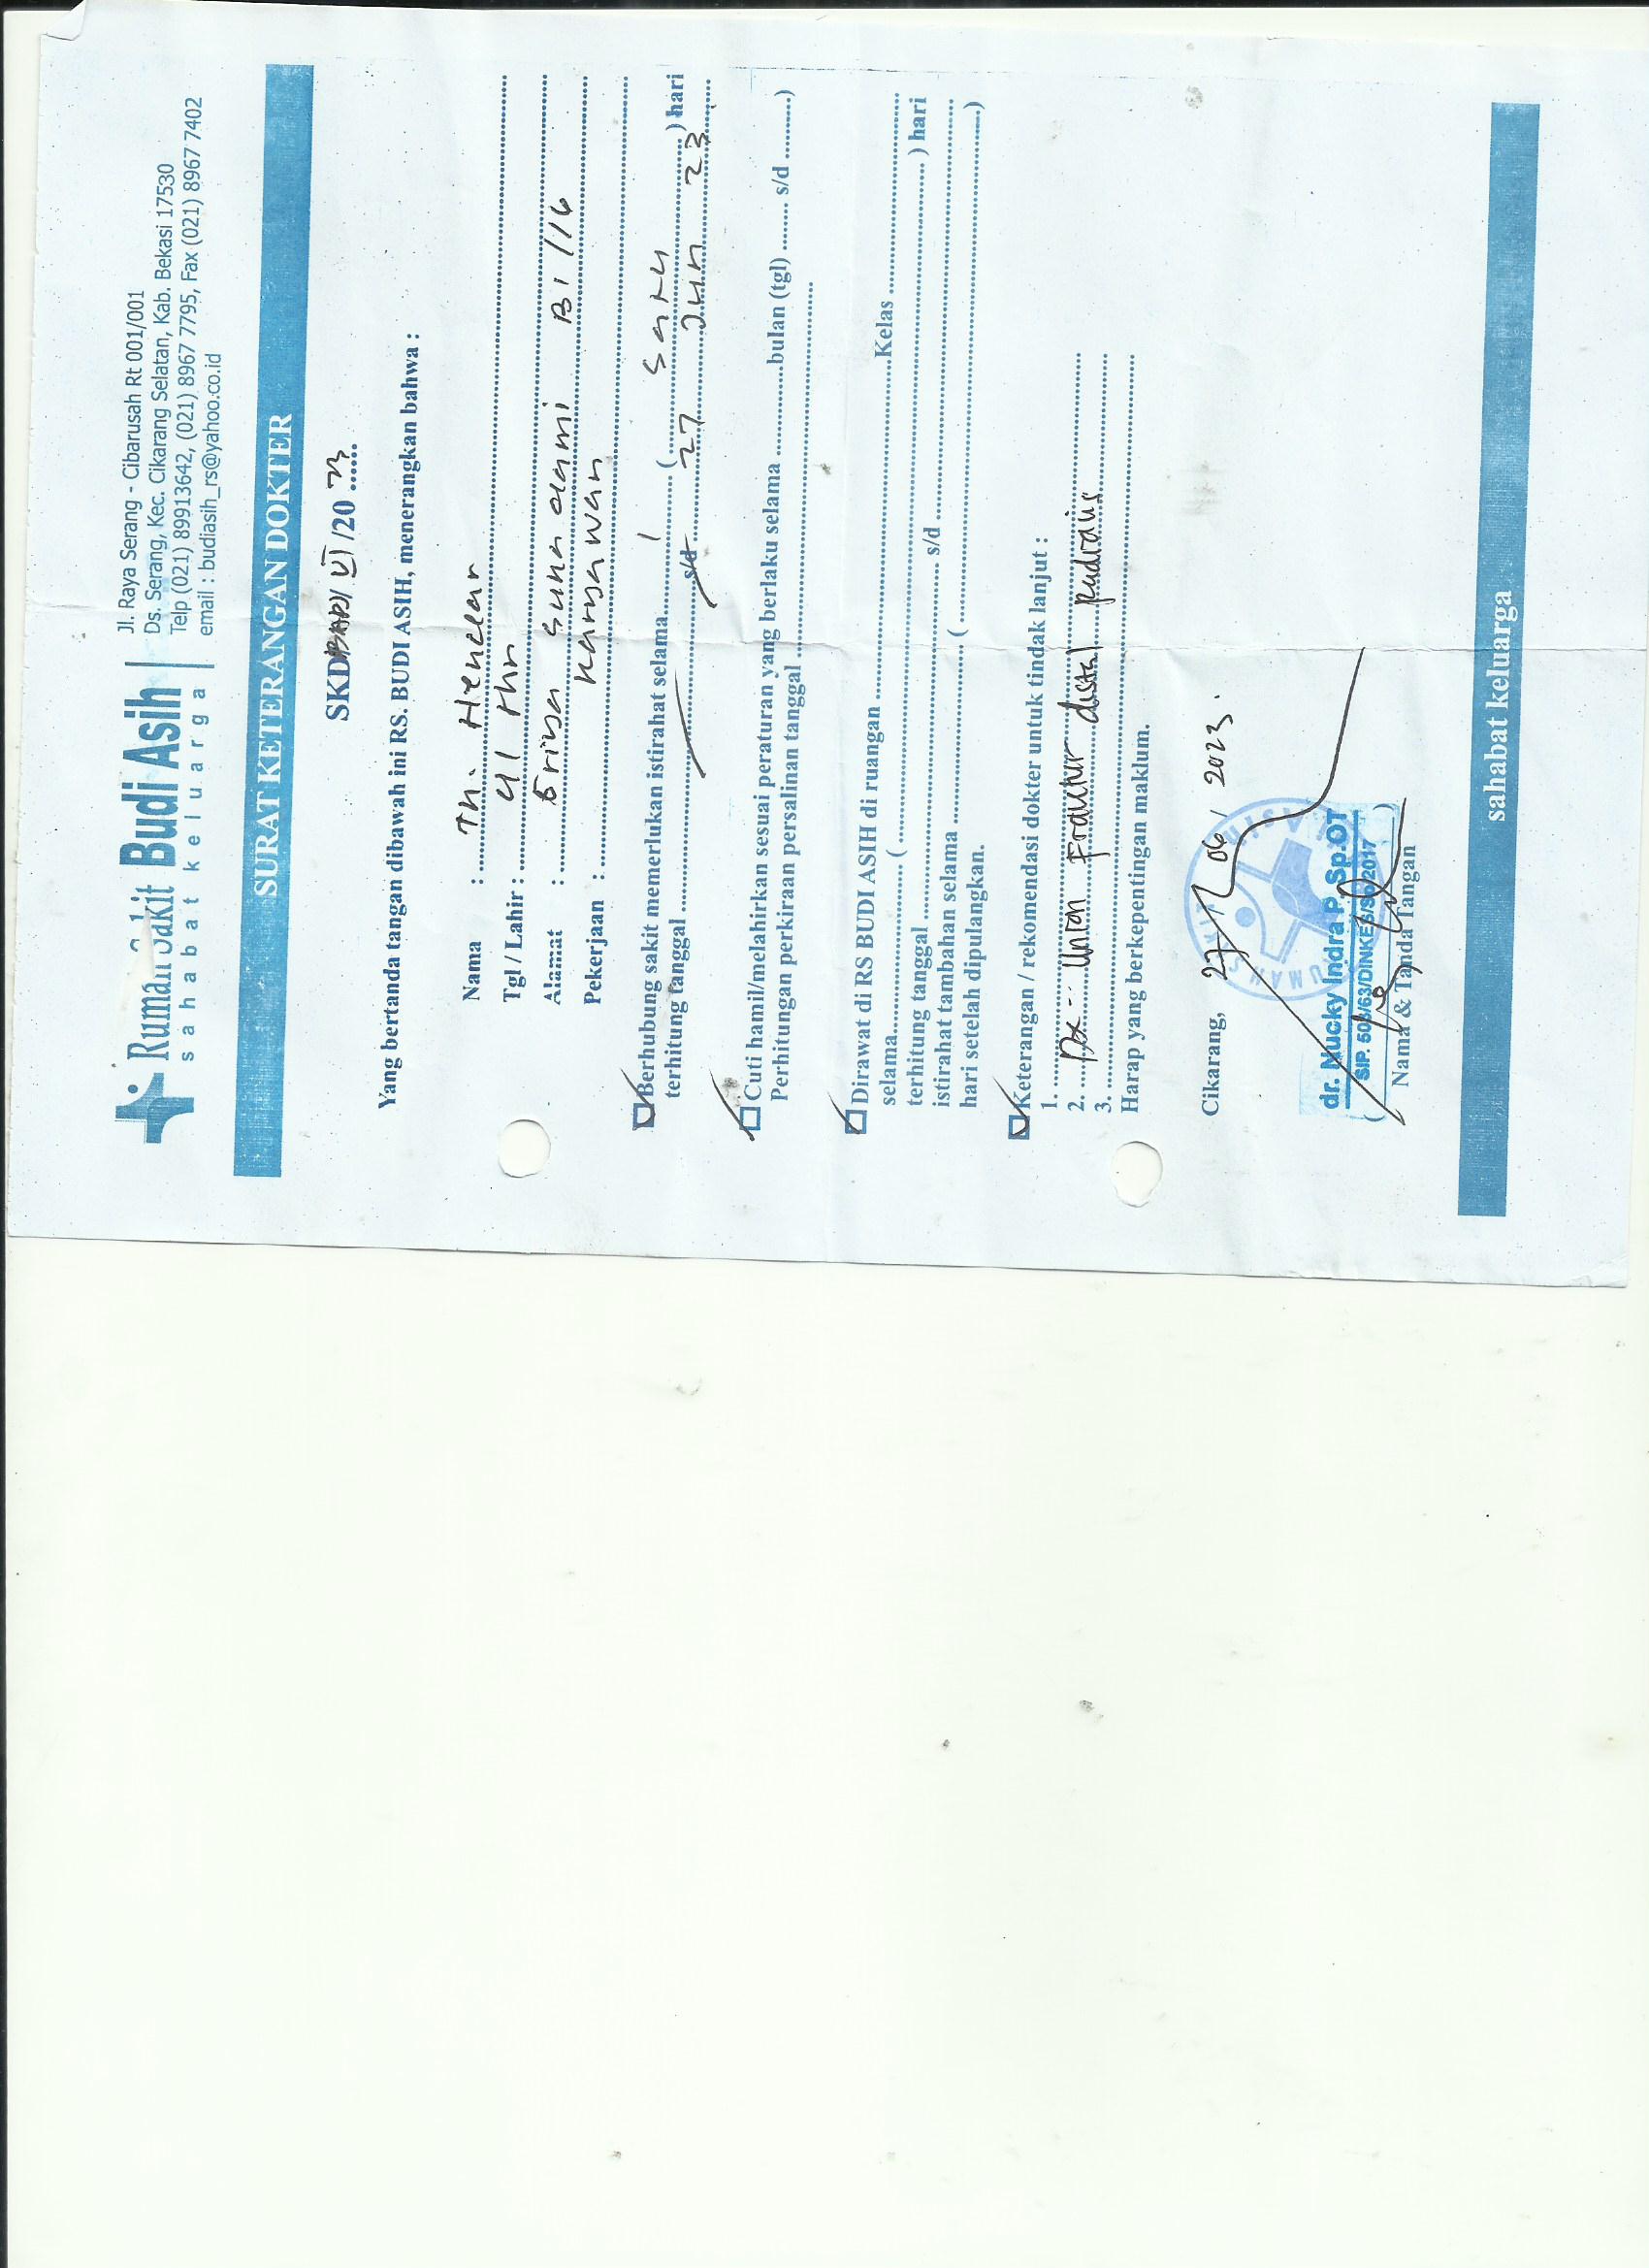 Rumah Sakit Budi Asih
sahabat keluarga
Jl. Raya Serang - Cibarusah Rt 001/001
Ds. Serang, Kec. Cikarang Selatan, Kab. Bekasi 17530
Telp (021) 89913642, (021) 8967 7795, Fax (021) 8967 7402
email : budiasih_rs@yahoo.co.id
SURAT KETERANGAN DOKTER
SKD /VI/20 23
Yang bertanda tangan dibawah ini RS. BUDI ASIH, menerangkan bahwa :
Nama : Tn. Hendar
Tgl / Lahir : 41 thn
Alamat : Sukadami B1/16
Pekerjaan : Karyawan
Berhubung sakit memerlukan istirahat selama 1 ( satu ) hari
terhitung tanggal s/d 27 Jun 23
Cuti hamil/melahirkan sesuai peraturan yang berlaku selama bulan (tgl) s/d )
Perhitungan perkiraan persalinan tanggal
Dirawat di RS BUDI ASIH di ruangan Kelas
selama ( ) hari
terhitung tanggal s/d
istirahat tambahan selama ( )
hari setelah dipulangkan.
Keterangan / rekomendasi dokter untuk tindak lanjut :
1.
2. Dx : Union Fraktur distal
3.
Harap yang berkepentingan maklum.
Cikarang, 27/06, 2023.
dr. Mucky Indra P. Sp.OT
( )
Nama & Tanda Tangan
sahabat keluarga